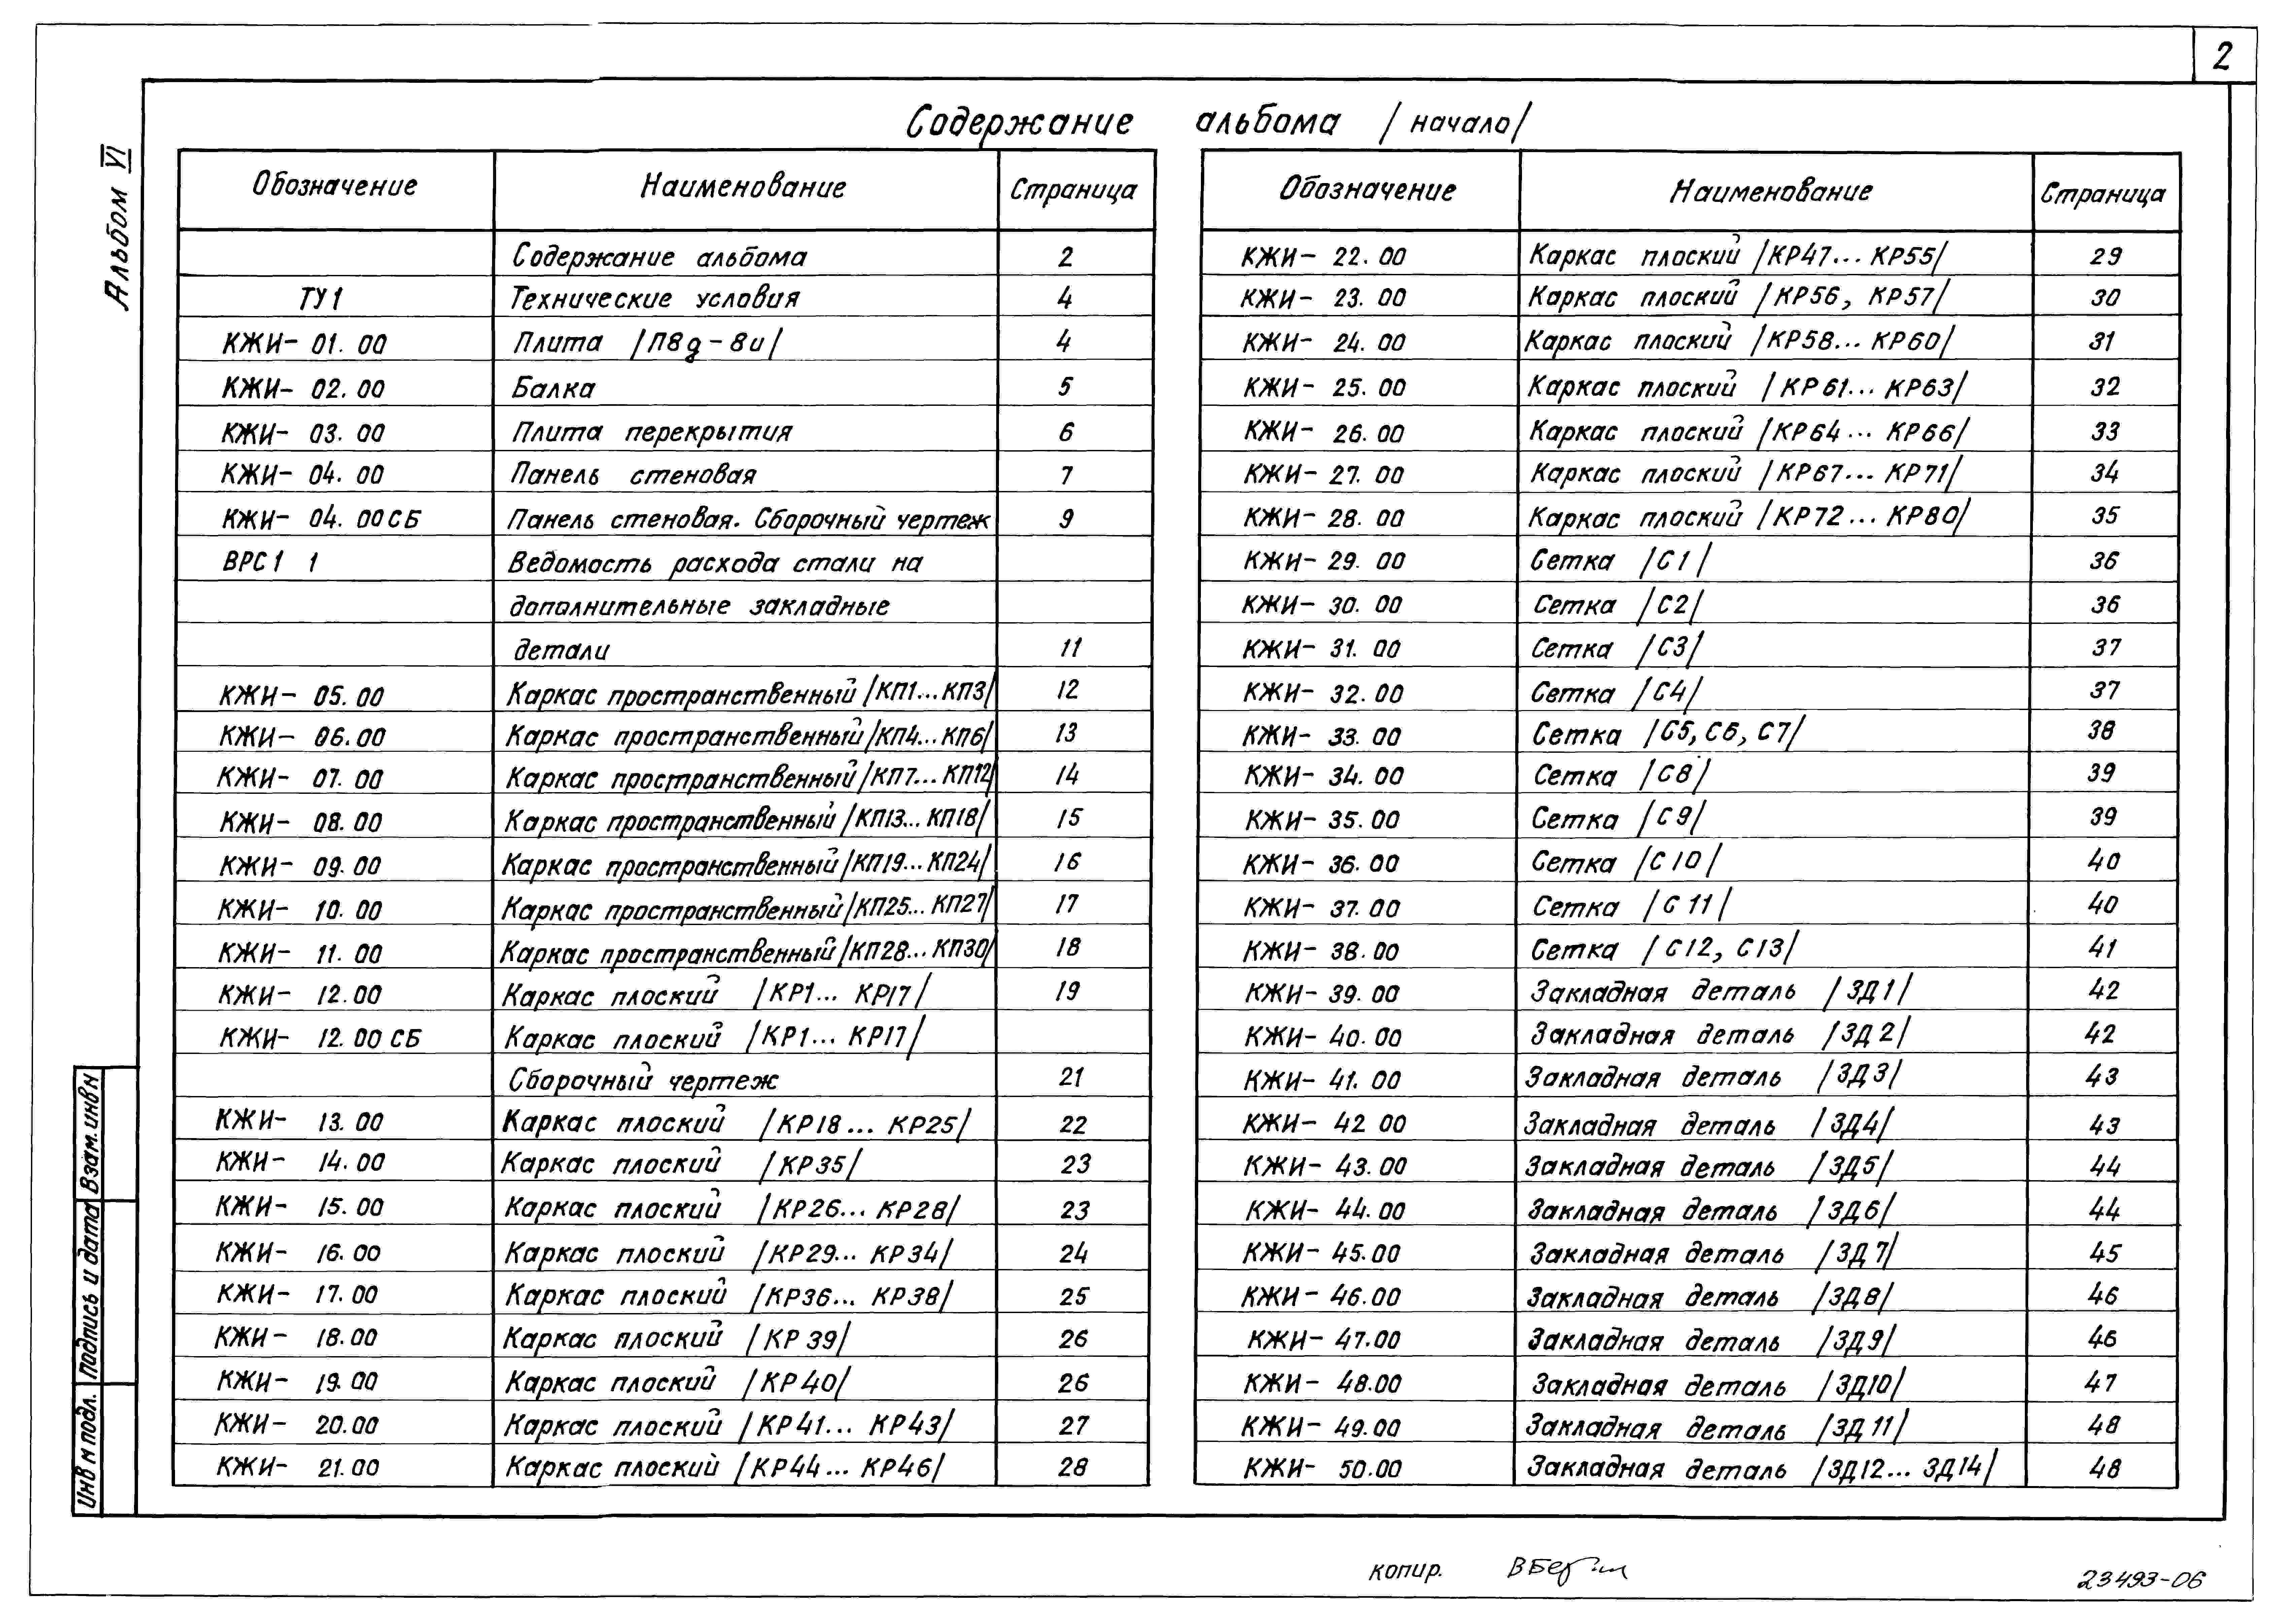 2
Альбом VI
Содержание альбома /начало/
Обозначение Наименование Страница
Содержание альбома 2
ТУ1 Технические условия 4
КЖИ- 01. 00 Плита /П8д-8и/ 4
КЖИ- 02. 00 Балка 5
КЖИ- 03. 00 Плита перекрытия 6
КЖИ- 04. 00 Панель стеновая 7
КЖИ- 04. 00СБ Панель стеновая. Сборочный чертеж 9
ВРС1 1 Ведомость расхода стали на
дополнительные закладные
детали 11
КЖИ- 05. 00 Каркас пространственный /КП1...КП3/ 12
КЖИ- 06. 00 Каркас пространственный /КП4...КП6/ 13
КЖИ- 07. 00 Каркас пространственный /КП7...КП12/ 14
КЖИ- 08. 00 Каркас пространственный /КП13...КП18/ 15
КЖИ- 09. 00 Каркас пространственный /КП19...КП24/ 16
КЖИ- 10. 00 Каркас пространственный /КП25...КП27/ 17
КЖИ- 11. 00 Каркас пространственный /КП28...КП30/ 18
КЖИ- 12.00 Каркас плоский /КР1... КР17/ 19
КЖИ- 12. 00 СБ Каркас плоский /КР1... КР17/
Сборочный чертеж 21
КЖИ- 13. 00 Каркас плоский /КР18... КР25/ 22
КЖИ- 14. 00 Каркас плоский /КР35/ 23
КЖИ- 15. 00 Каркас плоский /КР26... КР28/ 23
КЖИ- 16. 00 Каркас плоский /КР29... КР34/ 24
КЖИ- 17. 00 Каркас плоский /КР36... КР38/ 25
КЖИ- 18.00 Каркас плоский /КР 39/ 26
КЖИ- 19. 00 Каркас плоский /КР 40/ 26
КЖИ- 20.00 Каркас плоский /КР41... КР43/ 27
КЖИ- 21.00 Каркас плоский /КР44... КР46/ 28
Обозначение Наименование Страница
КЖИ- 22. 00 Каркас плоский /КР47... КР55/ 29
КЖИ- 23. 00 Каркас плоский /КР56, КР57/ 30
КЖИ- 24. 00 Каркас плоский /КР58... КР60/ 31
КЖИ- 25. 00 Каркас плоский /КР61... КР63/ 32
КЖИ- 26. 00 Каркас плоский /КР64... КР66/ 33
КЖИ- 27. 00 Каркас плоский /КР67... КР71/ 34
КЖИ- 28. 00 Каркас плоский /КР72... КР80/ 35
КЖИ- 29. 00 Сетка /С1/ 36
КЖИ- 30. 00 Сетка /С2/ 36
КЖИ- 31. 00 Сетка /С3/ 37
КЖИ- 32. 00 Сетка /С4/ 37
КЖИ- 33. 00 Сетка /С5, С6, С7/ 38
КЖИ- 34. 00 Сетка /С8/ 39
КЖИ- 35. 00 Сетка /С9/ 39
КЖИ- 36. 00 Сетка /С 10/ 40
КЖИ- 37. 00 Сетка /С 11/ 40
КЖИ- 38. 00 Сетка /С12, С13/ 41
КЖИ- 39. 00 Закладная деталь /ЗД1/ 42
КЖИ- 40. 00 Закладная деталь /ЗД 2/ 42
КЖИ- 41. 00 Закладная деталь /ЗД3/ 43
КЖИ- 42 00 Закладная деталь /ЗД4/ 43
КЖИ- 43. 00 Закладная деталь /ЗД5/ 44
КЖИ- 44. 00 Закладная деталь /ЗД6/ 44
КЖИ- 45. 00 Закладная деталь /ЗД 7/ 45
КЖИ- 46.00 Закладная деталь /ЗД8/ 46
КЖИ- 47.00 Закладная деталь /ЗД9/ 46
КЖИ- 48.00 Закладная деталь /ЗД10/ 47
КЖИ- 49.00 Закладная деталь /ЗД 11/ 48
КЖИ- 50.00 Закладная деталь /ЗД12... ЗД14/ 48
Взам. инвN
Подпись и дата
Инв N подл.
копир.
23493-06